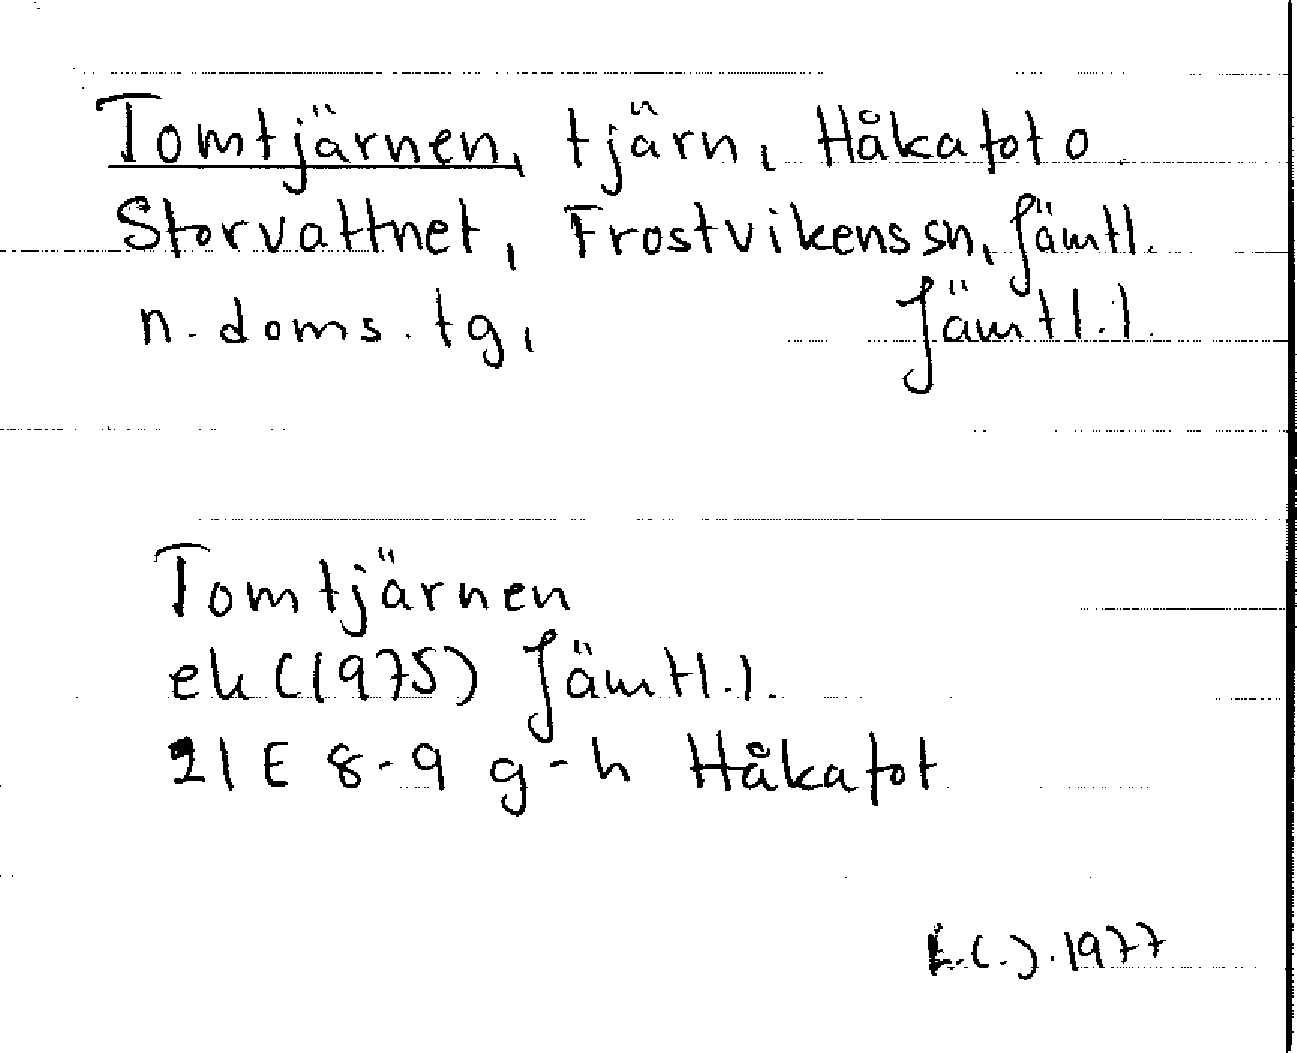 Tomtjärnen, tjärn, Håkafot o
Storvattnet, Frostvikens sn, Jämtl.
n. doms. tg, Jämtl. l.
Tomtjärnen
ek (1975) Jämtl. l.
21 E 8-9 g-h Håkafot
1977